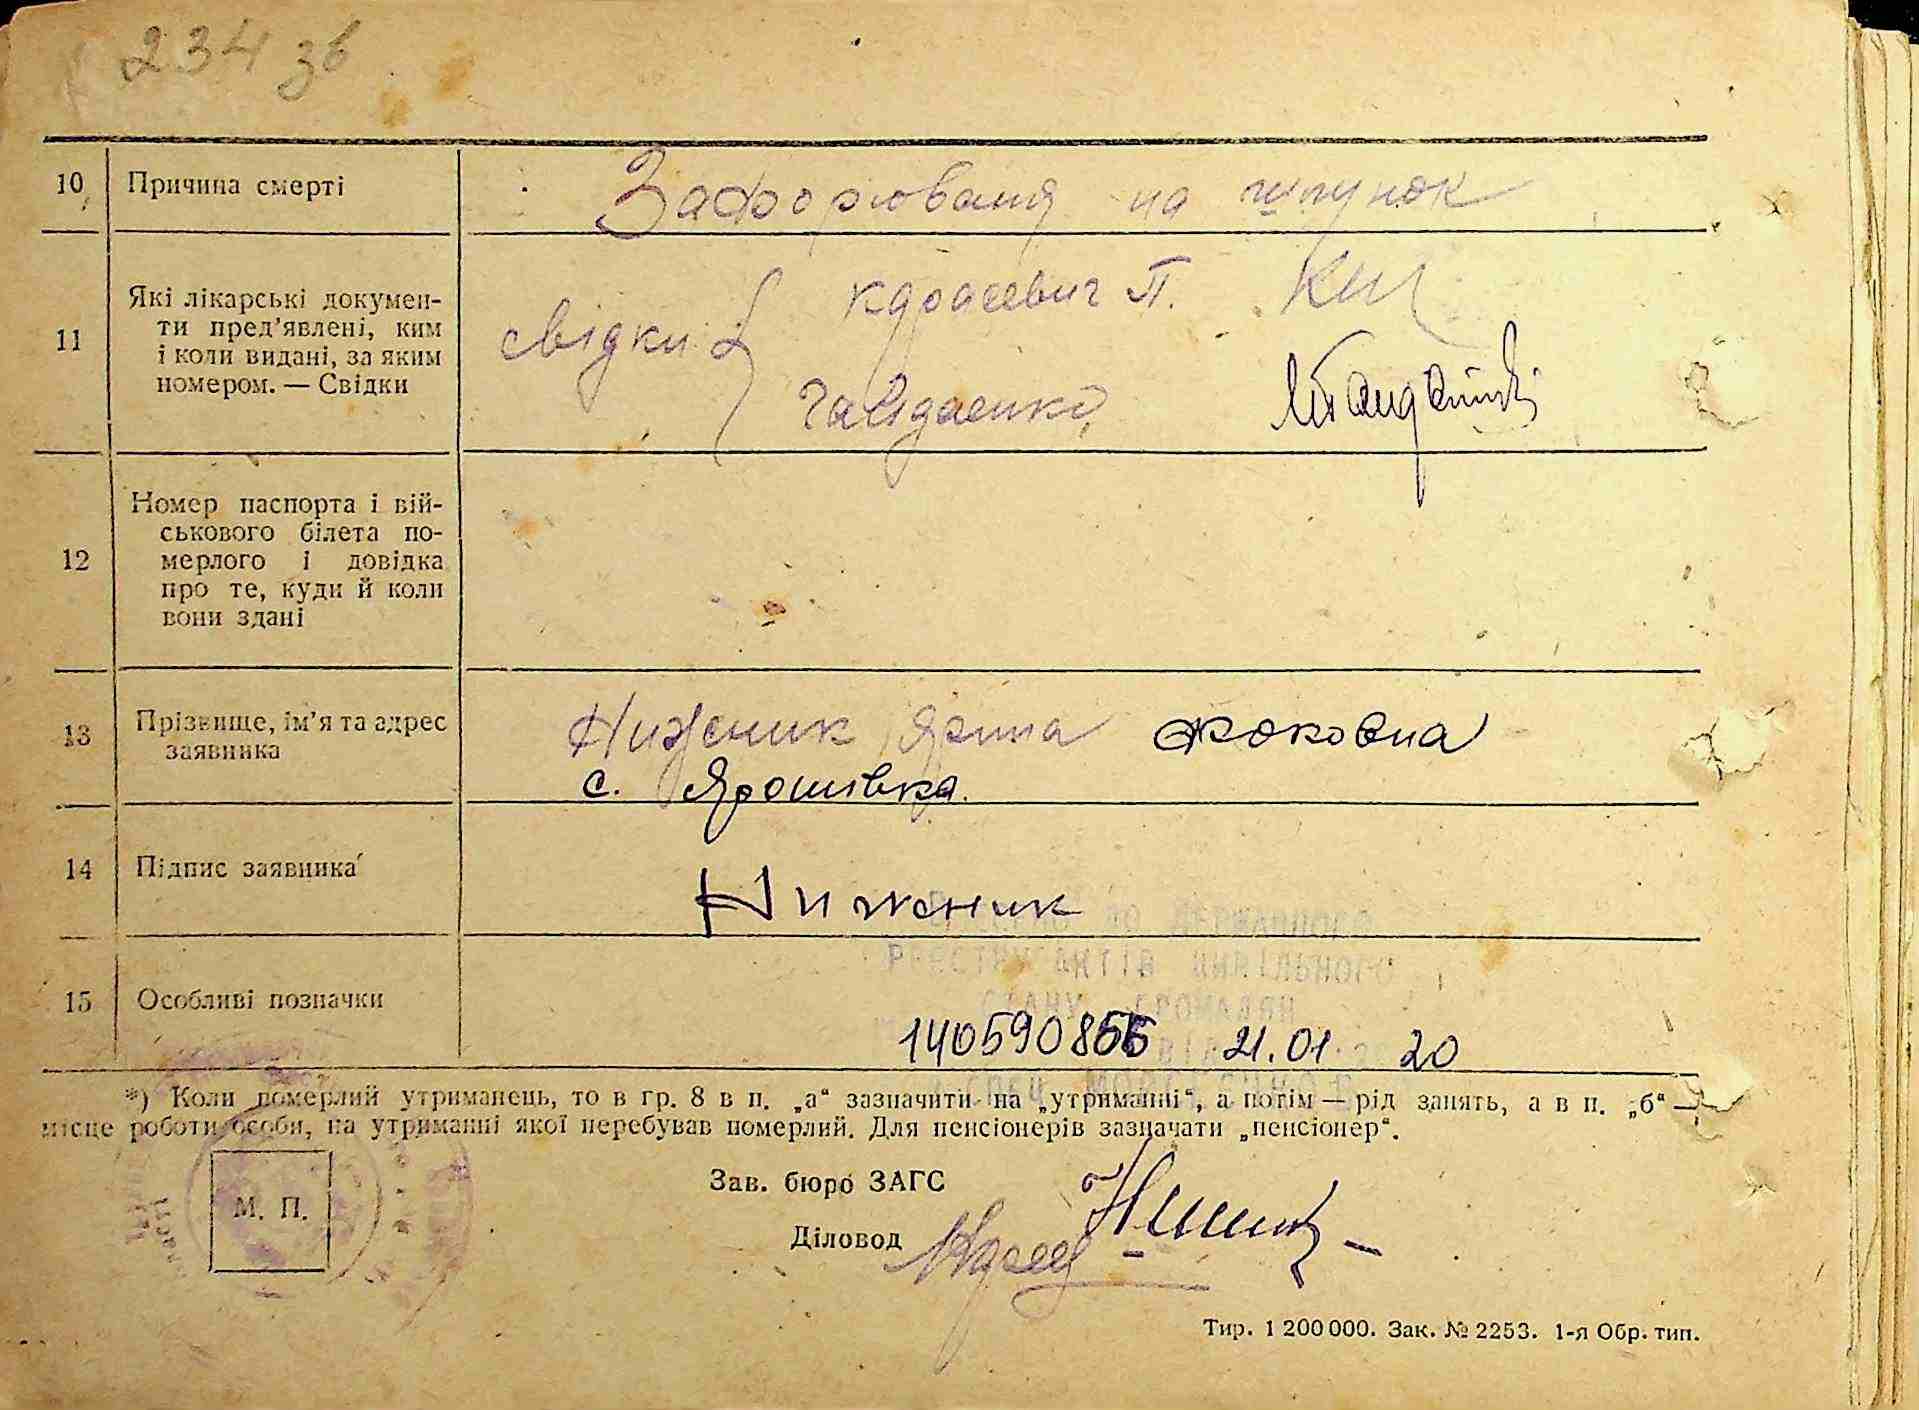 234 зв
10 Причина смерті на шлунок
11 Які лікарські докумен-
ти пред'явлені, ким
і коли видані, за яким
номером. — Свідки
свідки Карасевич П.
Гайдаенко
12 Номер паспорта і вій-
ськового білета по-
мерлого і довідка
про те, куди й коли
вони здані
13 Прізвище, ім'я та адрес
заявника
Нижник Ярина Якововна
с. Ярошівка.
14 Підпис заявника
Нижник
ДО ДЕРЖАВНОГО
РЕЄСТРУ АКТІВ ЦИВІЛЬНОГО
СТАНУ ГРОМАДЯН
15 Особливі позначки
21.01 20
*) Коли померлий утриманець, то в гр. 8 в п. „а“ зазначити на „утриманні“, а потім — рід занять, а в п. „б“ —
місце роботи особи, на утриманні якої перебував померлий. Для пенсіонерів зазначати „пенсіонер“.
М. П.
Зав. бюро ЗАГС
Діловод
Тир. 1 200 000. Зак. № 2253. 1-я Обр. тип.